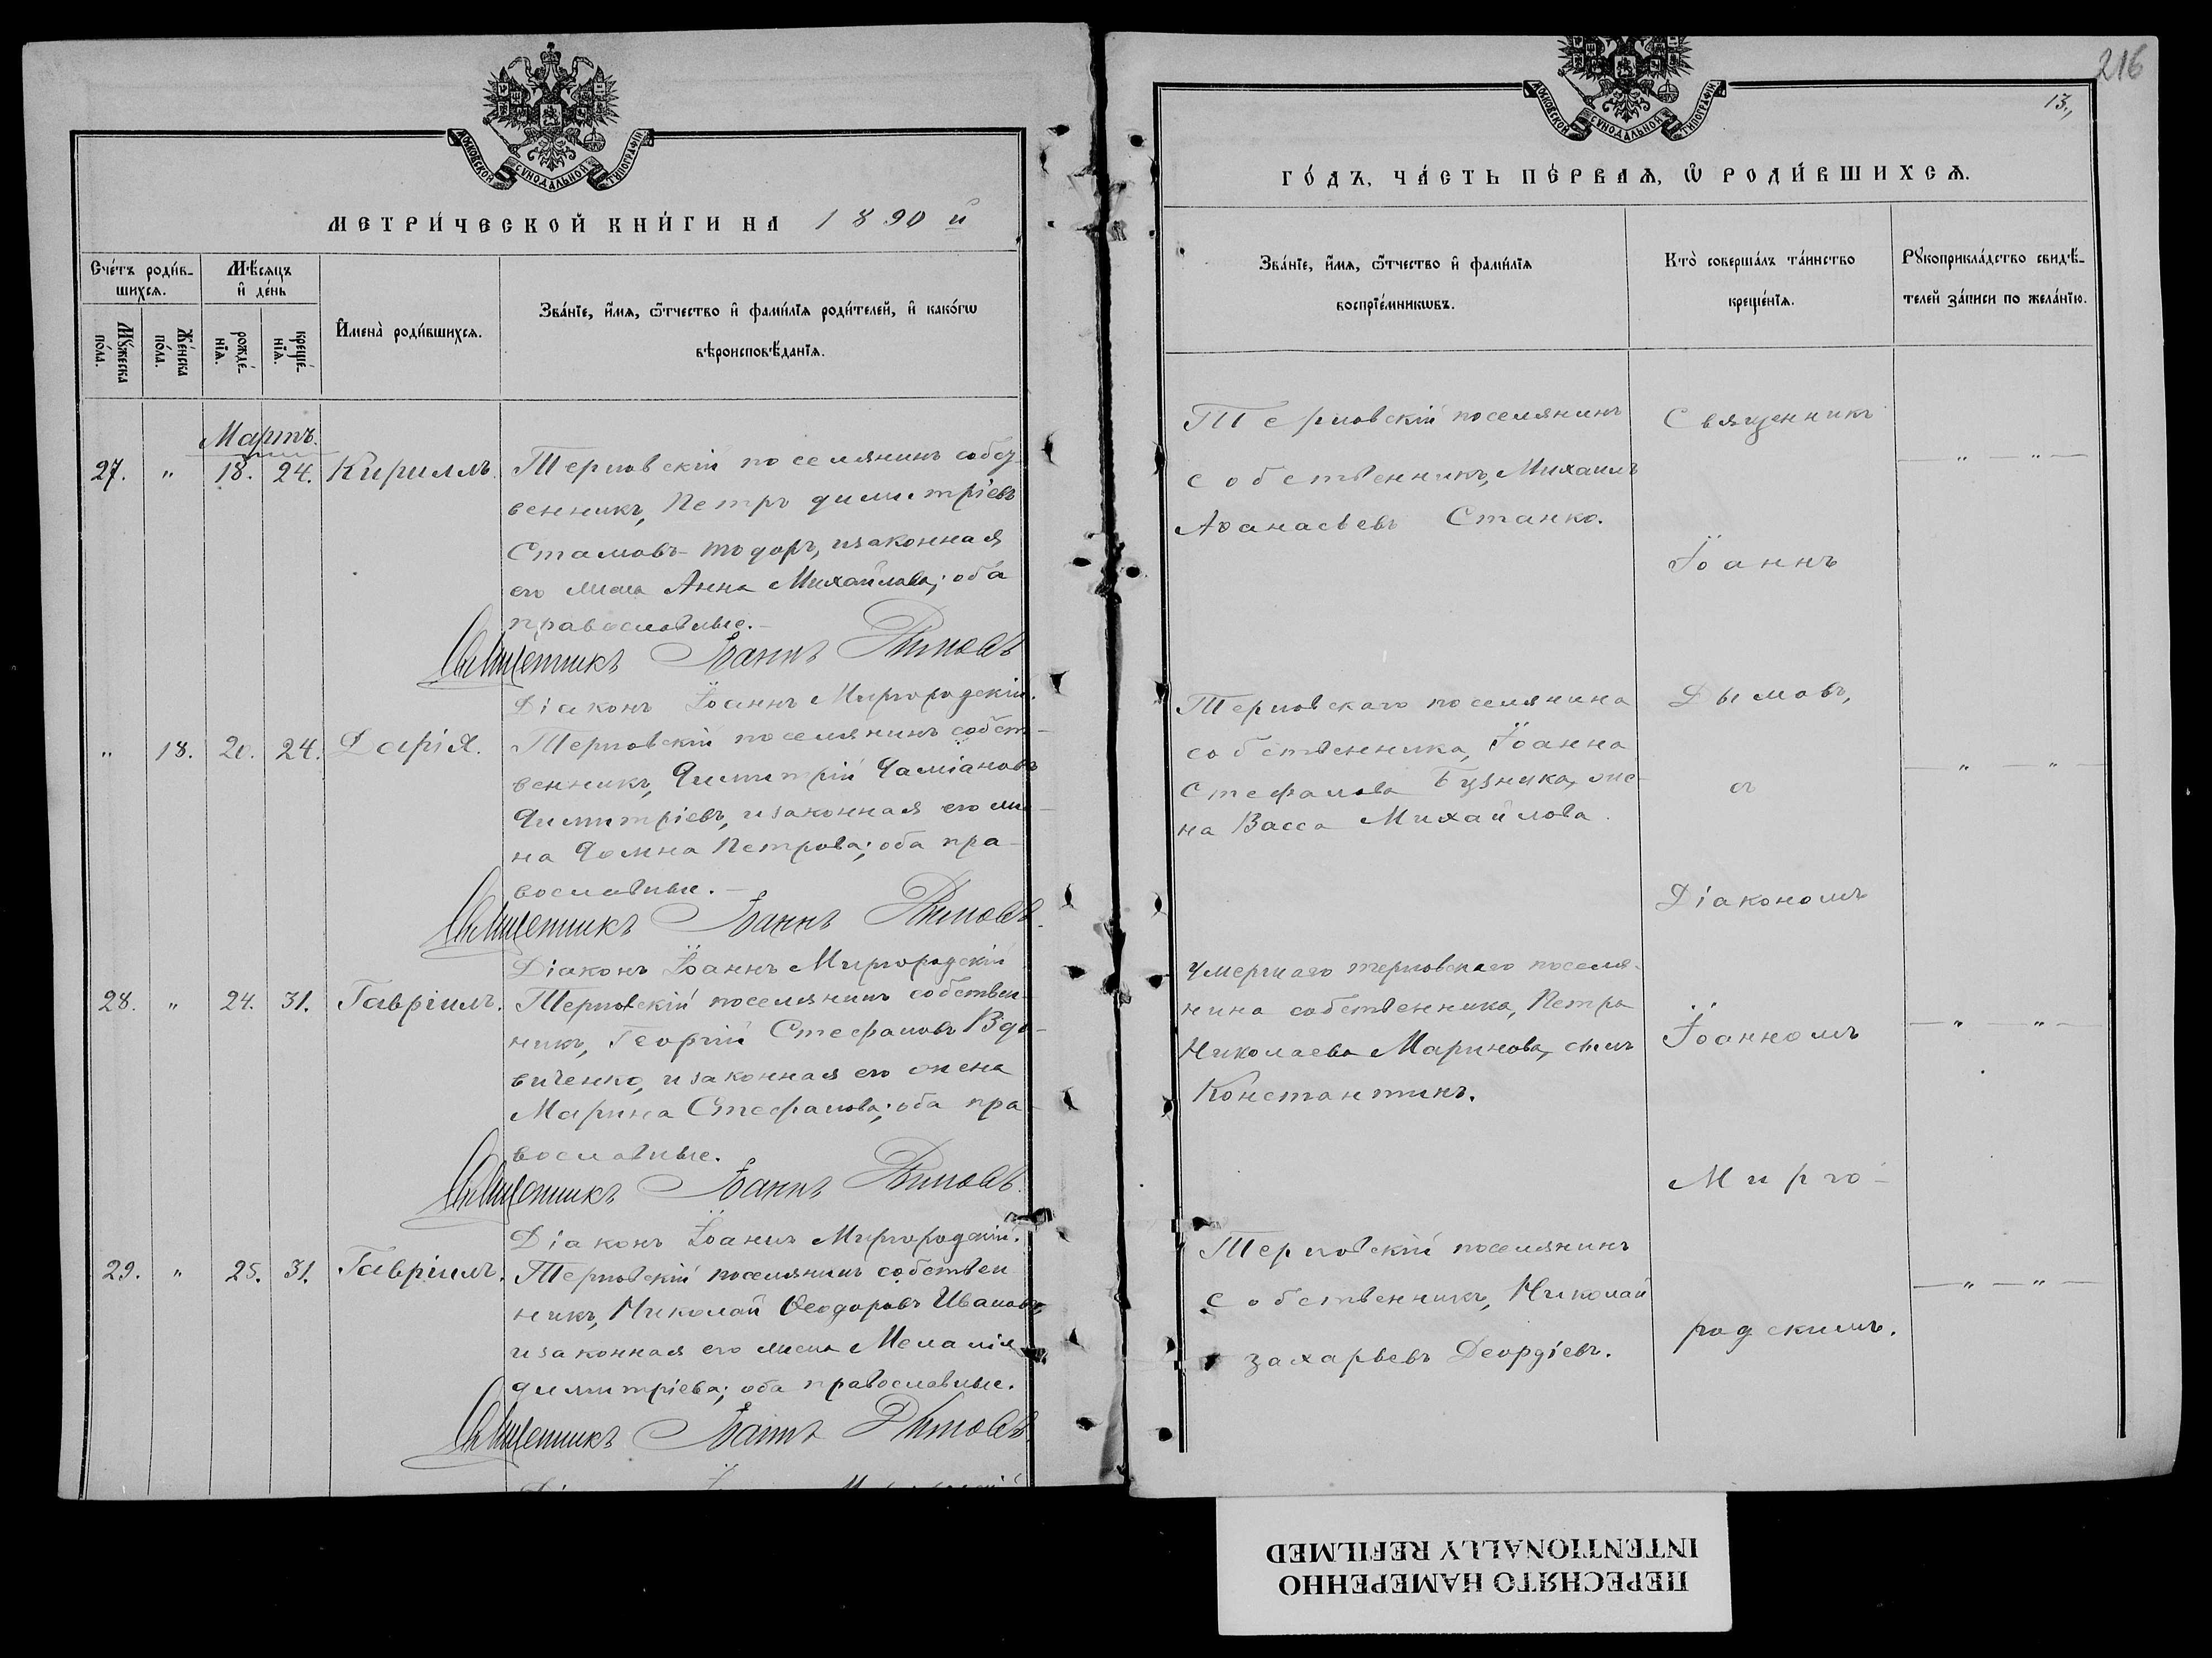 МОСКОВСКОЙ СѴНОДАЛЬНОЙ ТИПОГРАФІИ
МЕТРИ́ЧЕСКОЙ КНИ́ГИ НА 1890 й
Сче́тъ роди́в-
шихсѧ.
Мѣ́сѧцъ
и҆ де́нь
И҆мена̀ роди́вшихсѧ.
Зва́нїе, и҆́мѧ, ѻ҆́тчество и҆ фами́лїѧ роди́телей, и҆ како́гѡ
вѣроисповѣ́данїѧ.
Мꙋ́жеска
по́ла.
Же́нска
по́ла.
рожде́-
нїѧ.
креще́-
нїѧ.
Мартъ.
27. " 18. 24. Кириллъ. Терновскій поселянинъ собст
венникъ, Петръ Димитріевъ
Стамовъ-Тодоръ, изаконная
его жена Анна Михайлова; оба
православные.-
Священникъ Іоаннъ Дымовъ
Діаконъ Іоаннъ Миргородскій.
" 18. 20. 24. Дарія. Терновскій поселянинъ собст-
венникъ, Димитрій Даміановъ
Димитріевъ, изаконная его же-
на Домна Петрова; оба пра-
вославные.-
Священникъ Іоаннъ Дымовъ.
Діаконъ Іоаннъ Миргородскій
28. " 24. 31. Гавріилъ. Терновскій поселянинъ собствен-
никъ, Георгій Стефановъ Вдо-
виченко, изаконная его жена
Марина Стефанова; оба пра-
вославные.
Священникъ Іоаннъ Дымовъ.
Діаконъ Іоаннъ Миргородскій.
29. " 25. 31. Гавріилъ. Терновскій поселянинъ собствен
никъ, Николай Ѳеодоровъ Ивановъ,
изаконная его жена Меланія
Димитріева; оба православные.
Священникъ Іоаннъ Дымовъ.
216
13,,
МОСКОВСКОЙ СѴНОДАЛЬНОЙ ТИПОГРАФІИ
ГО́ДЪ, ЧА́СТЬ ПЕ́РВАѦ, Ѡ҆ РОДИ́ВШИХСѦ.
Зва́нїе, и҆́мѧ, ѻ҆́тчество и҆ фами́лїѧ
воспрїе́мникѡвъ.
Кто̀ соверша́лъ та́инство
креще́нїѧ.
Рꙋкоприкла́дство свидѣ́-
телей за́писи по жела́нїю.
Терновскій поселянинъ
собственникъ, Михаилъ
Аѳанасьевъ Станко.
Священникъ
Іоаннъ
— " — " —
Терновскаго поселянина
собственника, Іоанна
Стефанова Бузника, же-
на Васса Михайлова.
Дымовъ,
съ
Діакономъ
— " — " —
Умершаго терновскаго поселя-
нина собственника, Петра
Николаева Маринова, сынъ
Константинъ.
Іоанномъ
Мирго-
— " — " —
Терновскій поселянинъ
собственникъ, Николай
Захарьевъ Деордіевъ.
родскимъ.
— " — " —
ПЕРЕСНЯТО НАМЕРЕННО
INTENTIONALLY REFILMED